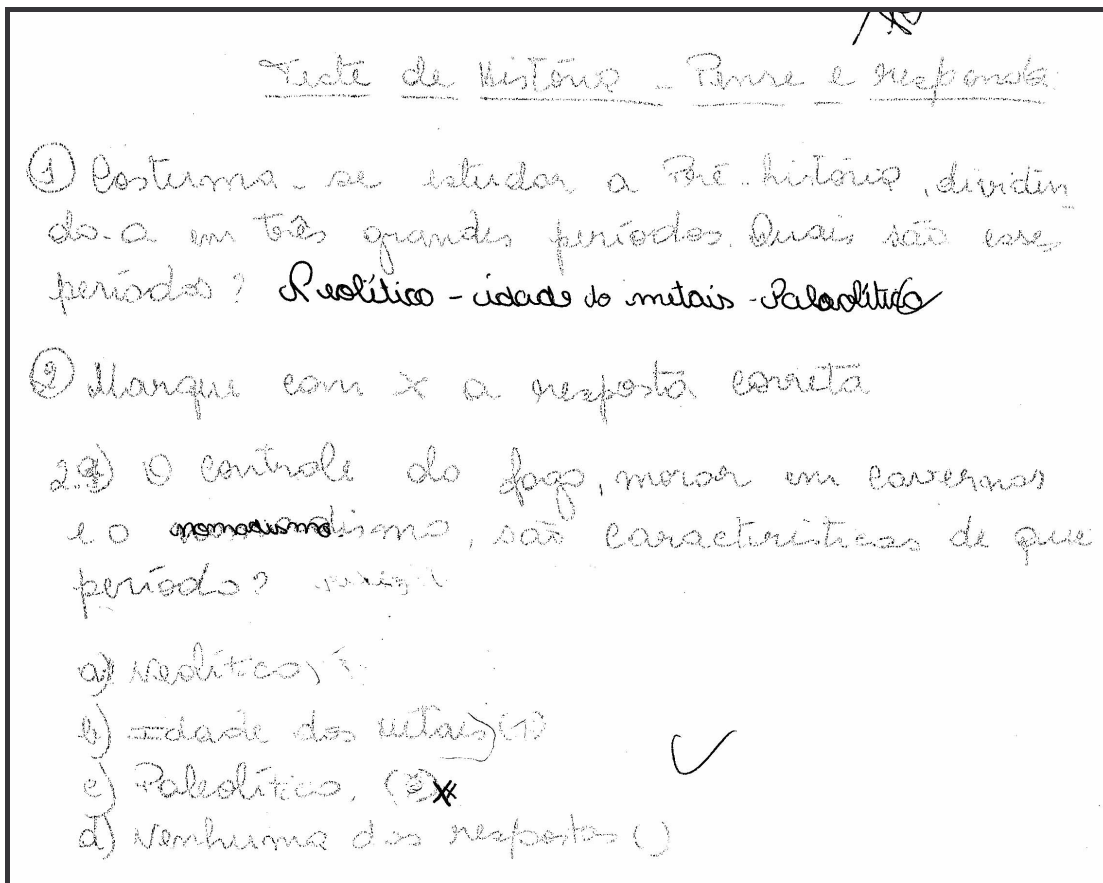 Teste de História - Pense e responda:
① Costuma-se estudar a Pré-história, dividin
do-a em três grandes períodos. Quais são esses
períodos? Neolítico - idade do metais - Paleolítico
② Marque com x a resposta correta
2.1) O controle do fogo, morar em cavernas
e o nomadismo, são características de que
período?
a) Neolítico,
b) Idade dos Metais ( )
c) Paleolítico. ( ) x
d) Nenhuma das respostas ( )